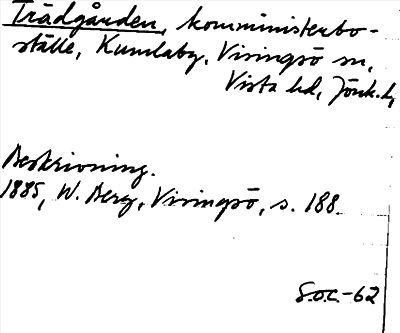 Trädgården, komministerbo-
ställe, Kumlaby, Visingsö sn,
Vista hd, Jönk. l,
Beskrivning.
1885, W. Berg, Visingsö, s. 188.
S.O.C.-62